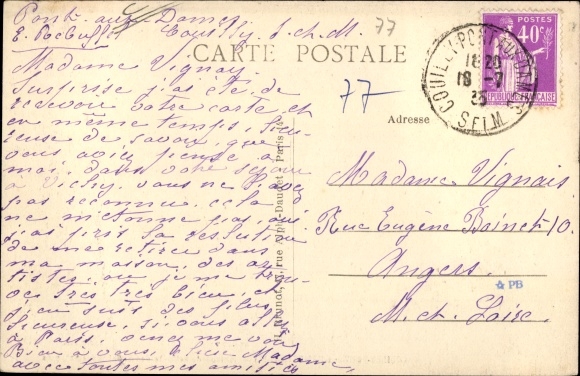 Pont aux Dames
E. Rebuffet Couilly, S. & M.
77
CARTE POSTALE
Madame Vignais
Surprise j'ai été de
recevoir votre carte et
en même temps, heu-
reuse de savoir, que
vous aviez pensé à
moi, dans votre séjour
à Vichy, vous ne l'avez
pas reconnue, cela
ne m'étonne pas,
j'ai pris la résolution
de me retirer dans
ma maison, des ar-
tistes, ou je me trou-
ve très très bien, et
bien suis des plus
heureuse, si vous allez
à Paris, venez me voir
Bien à vous, chère Madame,
avec toutes mes amitiés
77
Adresse
Madame Vignais
Rue Eugène Bainet 10.
Angers.
M. et. Loire.
POSTES
40c
RÉPUBLIQUE FRANÇAISE
COUILLY-PONT-AUX-DAMES
18 20
18 -7
35
SEINE
PB